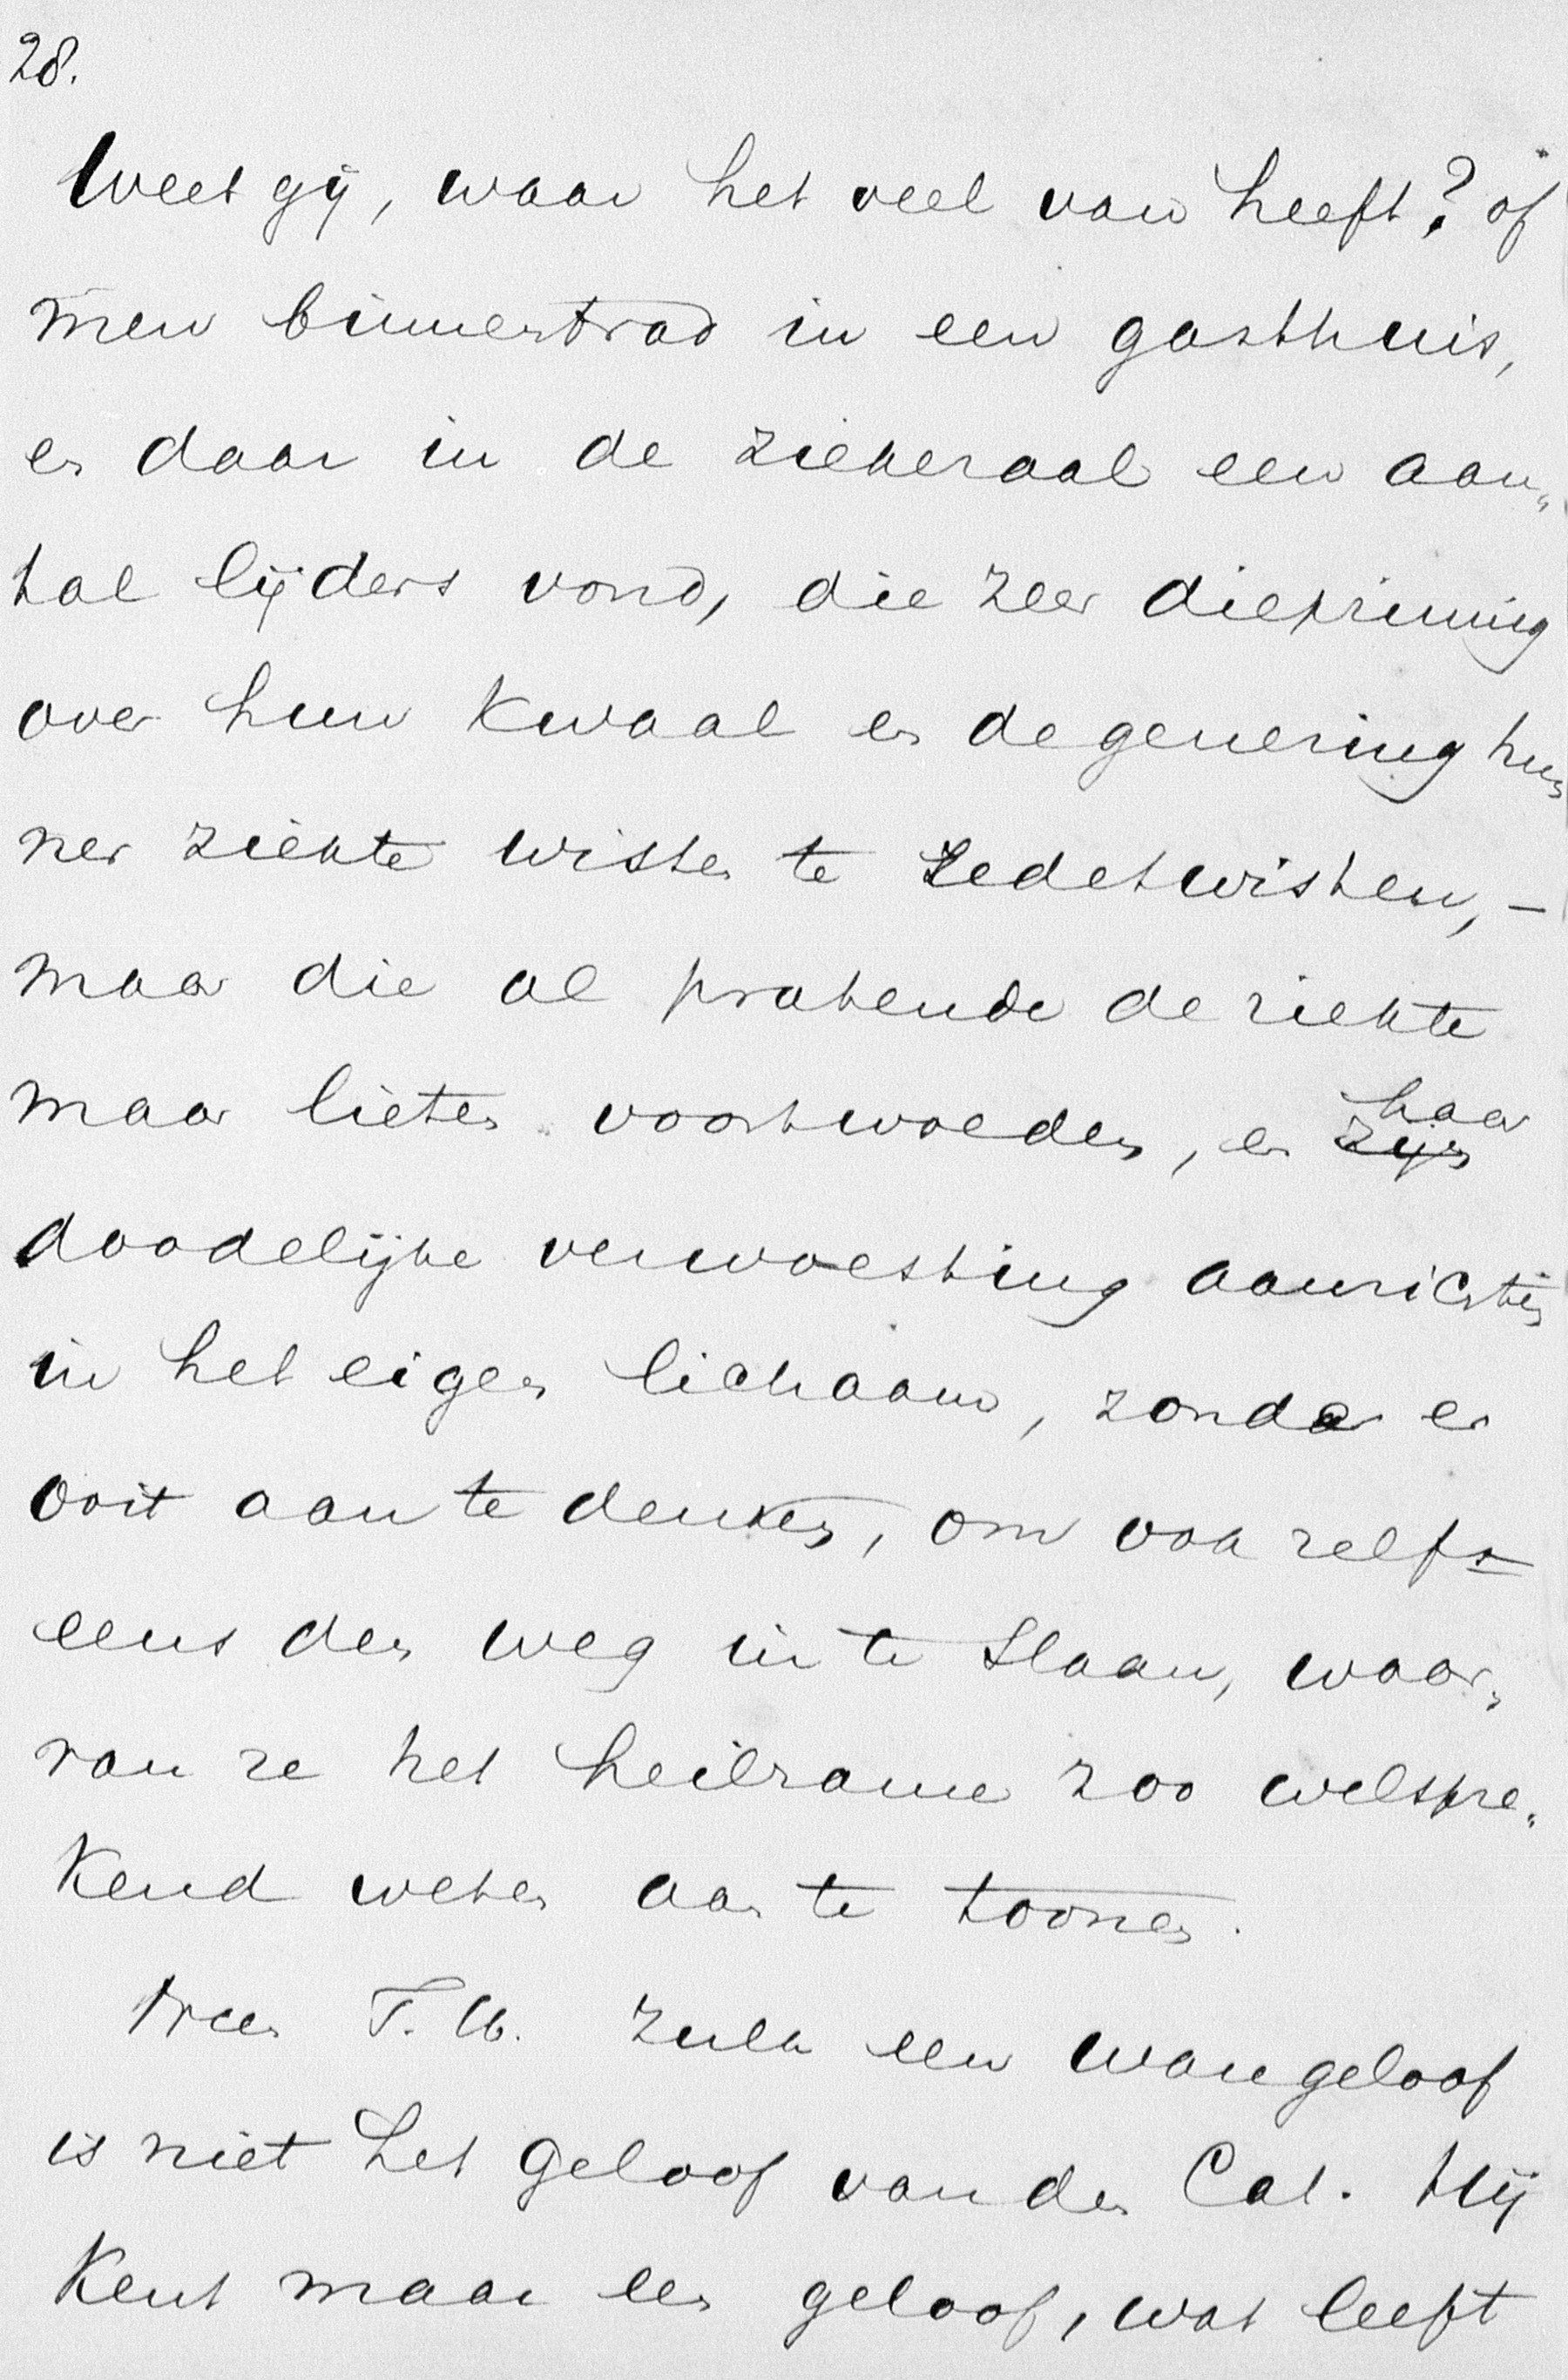 28.
Weet gij, waar het veel van heeft? of
men binnentrad in een gasthuis,
en daar in de ziekenzaal een aan„
tal lijders vond, die zeer diepzinnig
over hun kwaal en de genezing hun
ner ziekte wisten te redetwisten, –
maar die al pratende de ziekte
maar lieten voortwoeden, en ~~zijn~~ haar
doodelijke verwoesting aanrichten
in het eigen lichaam, zonder er
ooit aan te denken, om ook zelfs
eens den weg in te slaan, waar„
van ze het heilzame zoo welspre„
kend weten aan te toonen.
Neen T. U. zulk een wangeloof
is niet het geloof van den Cat. Hij
kent maar een geloof, wat leeft